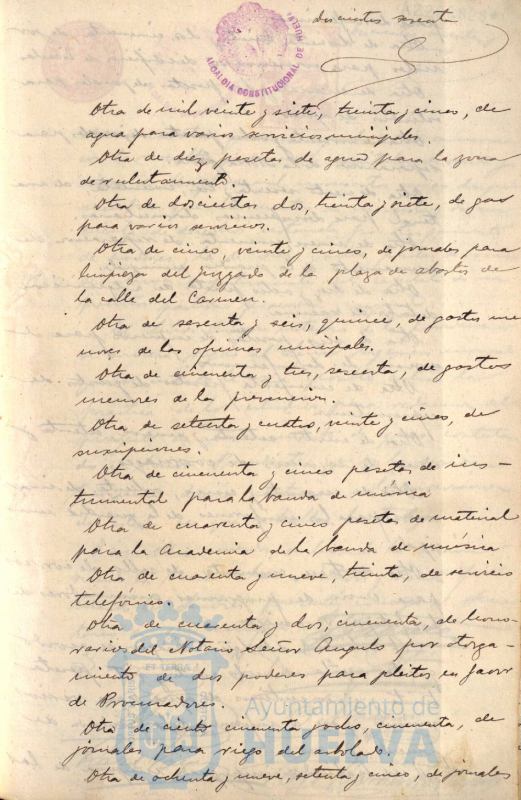 doscientos sesenta
ALCALDIA CONSTITUCIONAL DE HUELVA
Otra de mil veinte y siete, treinta y cinco, de
agua para varios servicios municipales.
Otra de diez pesetas de agua para la zona
de reclutamiento.
Otra de doscientas dos, treinta y siete, de gas
para varios servicios.
Otra de cinco, veinte y cinco, de jornales para
limpieza del juzgado de la plaza de abastos de
la calle del Carmen.
Otra de sesenta y seis, quince, de gastos me
nores de las oficinas municipales.
Otra de cincuenta y tres, sesenta, de gastos
menores de la prevencion.
Otra de setenta y cuatro, veinte y cinco, de
suscripciones.
Otra de cincuenta y cinco pesetas de ins-
trumental para la banda de música
Otra de cuarenta y cinco pesetas de material
para la Academia de la banda de música
Otra de cuarenta y nueve, treinta, de servicio
telefónico.
Otra de cuarenta y dos, cincuenta, de hono-
rarios del Notario Señor Angulo por otorga-
miento de dos poderes para pleitos en favor
de Procuradores.
Otra de ciento cincuenta y ocho, cincuenta, de
jornales para riego del arbolado.
Otra de ochenta y nueve, setenta y cinco, de jornales
Ayuntamiento de
HUELVA